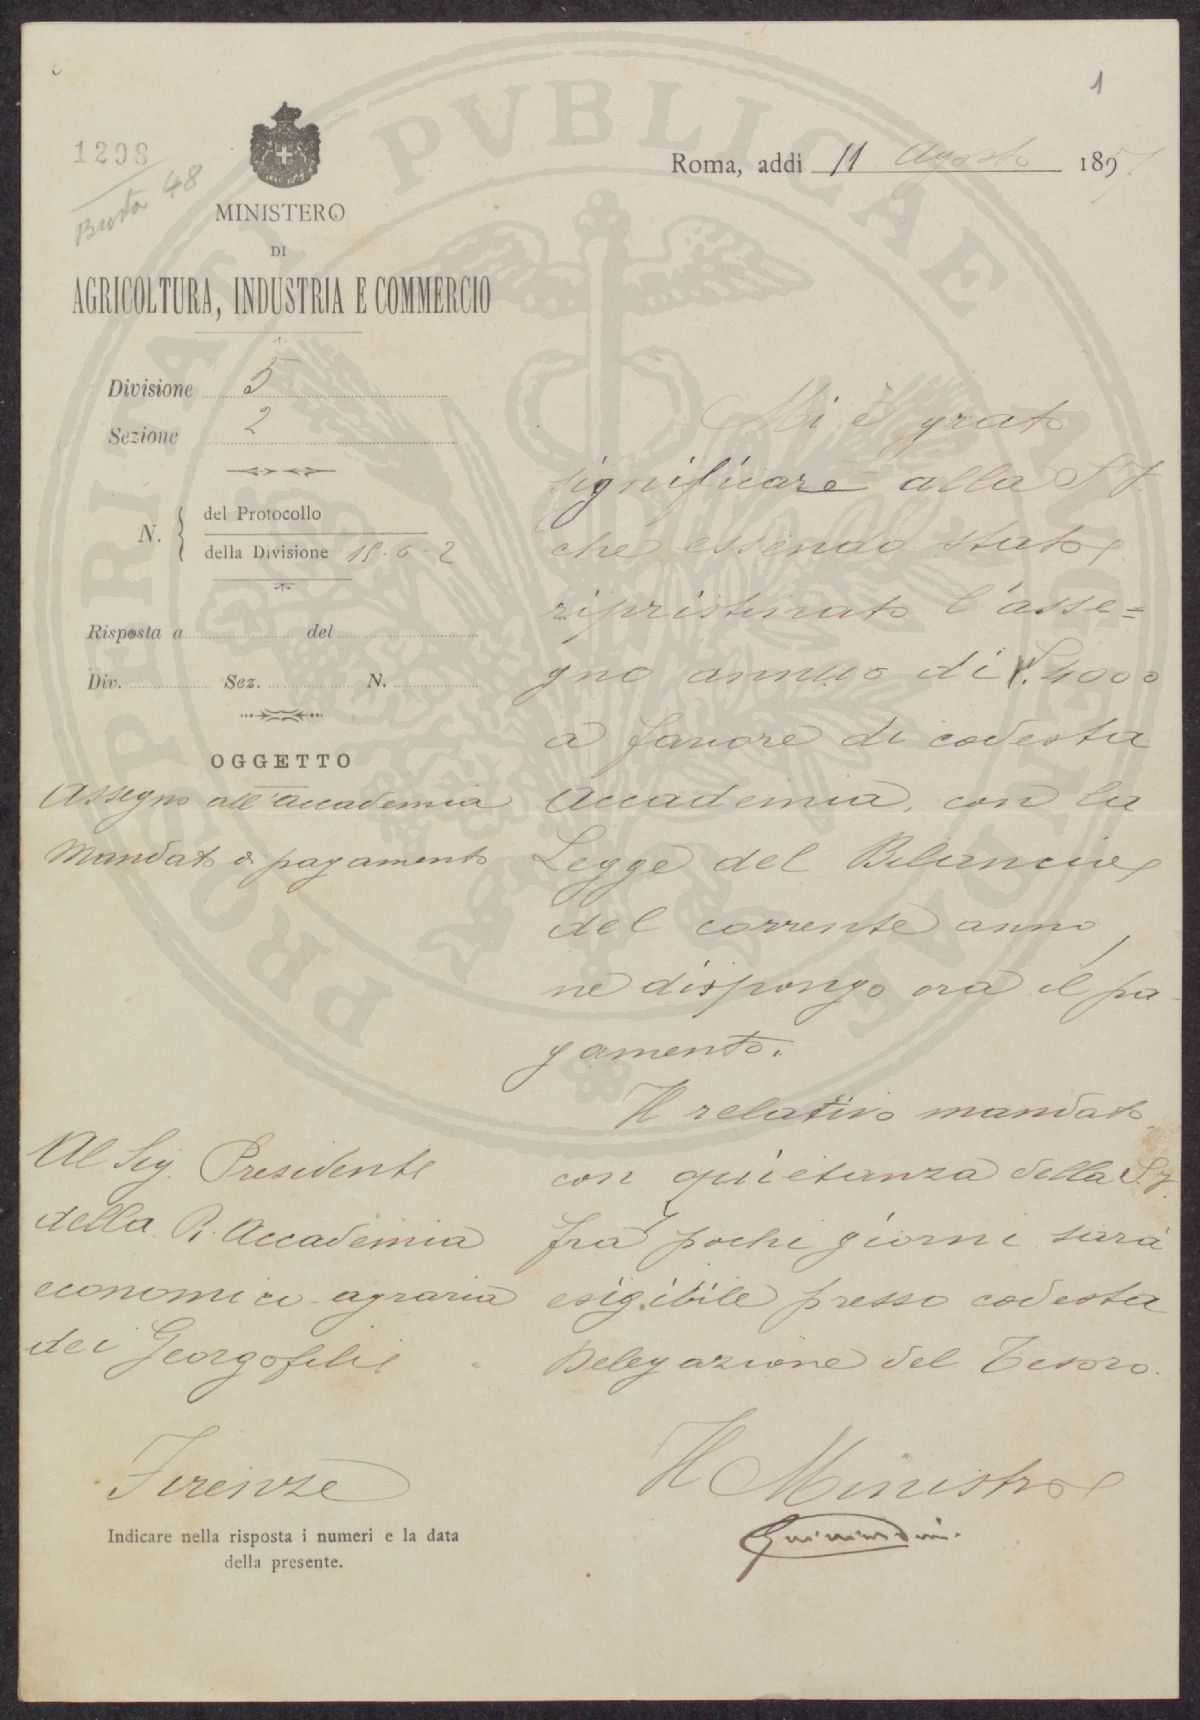 1
1298
Busta 48
Roma, addì 11 Agosto 1897
MINISTERO
DI
AGRICOLTURA, INDUSTRIA E COMMERCIO
Divisione 5
Sezione 2
N. del Protocollo
della Divisione 18-6-2
Risposta a del
Div. Sez. N.
OGGETTO
Assegno all'accademia
Mandato di pagamento
Al Sig. Presidente
della R. Accademia
economico-agraria
dei Georgofili
Firenze
Indicare nella risposta i numeri e la data
della presente.
Mi è grato
significare alla S. V.
che essendo stato
ripristinato l'asse=
gno annuo di £. 4000
a favore di codesta
Accademia, con la
Legge del Bilancio
del corrente anno,
ne dispongo ora il pa-
gamento.
Il relativo mandato
con quietanza della S. V.
fra pochi giorni sarà
esigibile presso codesta
Delegazione del Tesoro.
Il Ministro
Guicciardini
PROSPERITATI PVBLICAE AVGENDAE